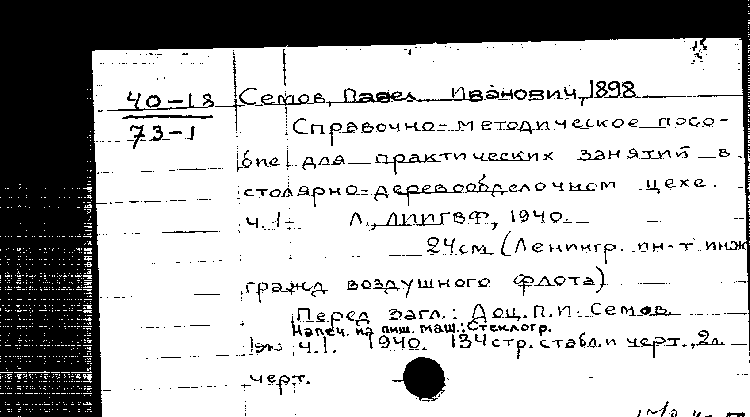 40-18
73-1
Семов, Павел Иванович, 1898
Справочно-методическое посо-
бие для практических занятий в
столярно-деревообделочном цехе.
ч. 1- Л., ЛИИГВФ, 1940.
24см (Ленингр. ин-т инж
гражд воздушного флота)
Перед загл.: Доц. П.И. Семов.
Напеч. на пиш. маш.: Стеклогр.
1эк ч.1. 1940. 134 стр. с табл. и черт., 2л.
черт.